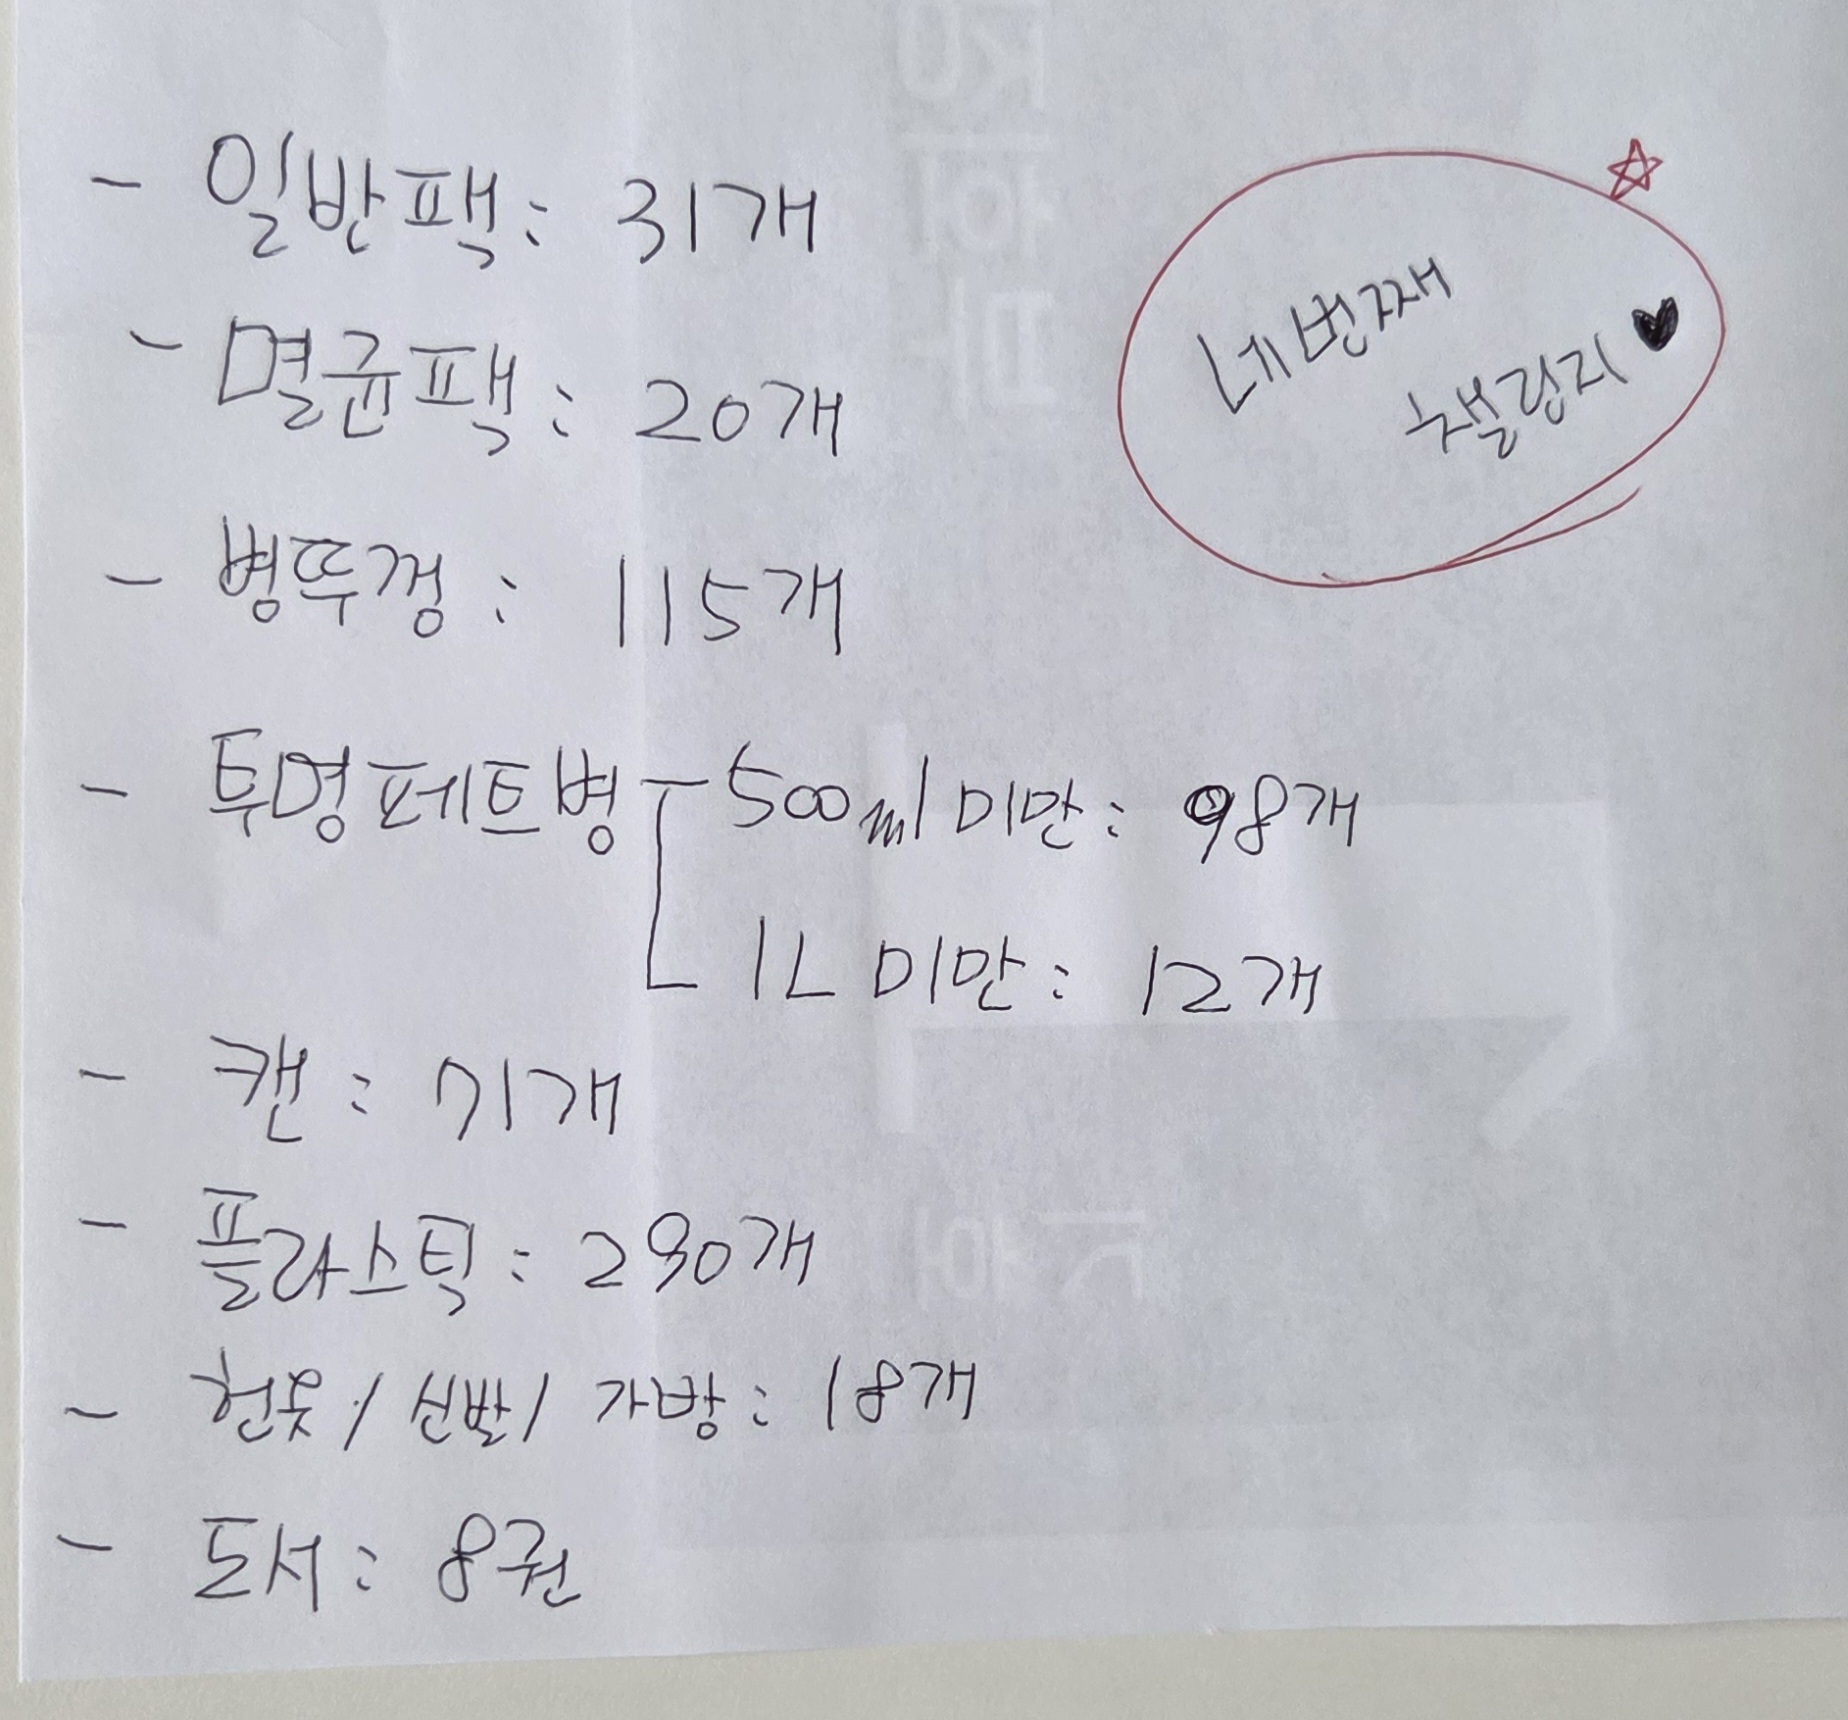 - 일반팩: 31개
네번째
챌린지♥
- 멸균팩: 20개
- 병뚜껑: 115개
- 투명페트병 - 500ml 미만: 98개
1L 미만: 12개
- 캔: 71개
- 플라스틱: 290개
- 헌옷/신발/가방: 18개
- 도서: 8권